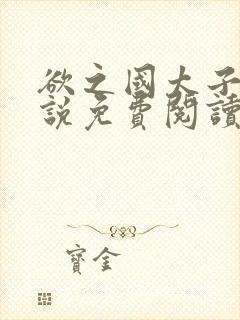 欲之國大子
說免費閱讀
寶金